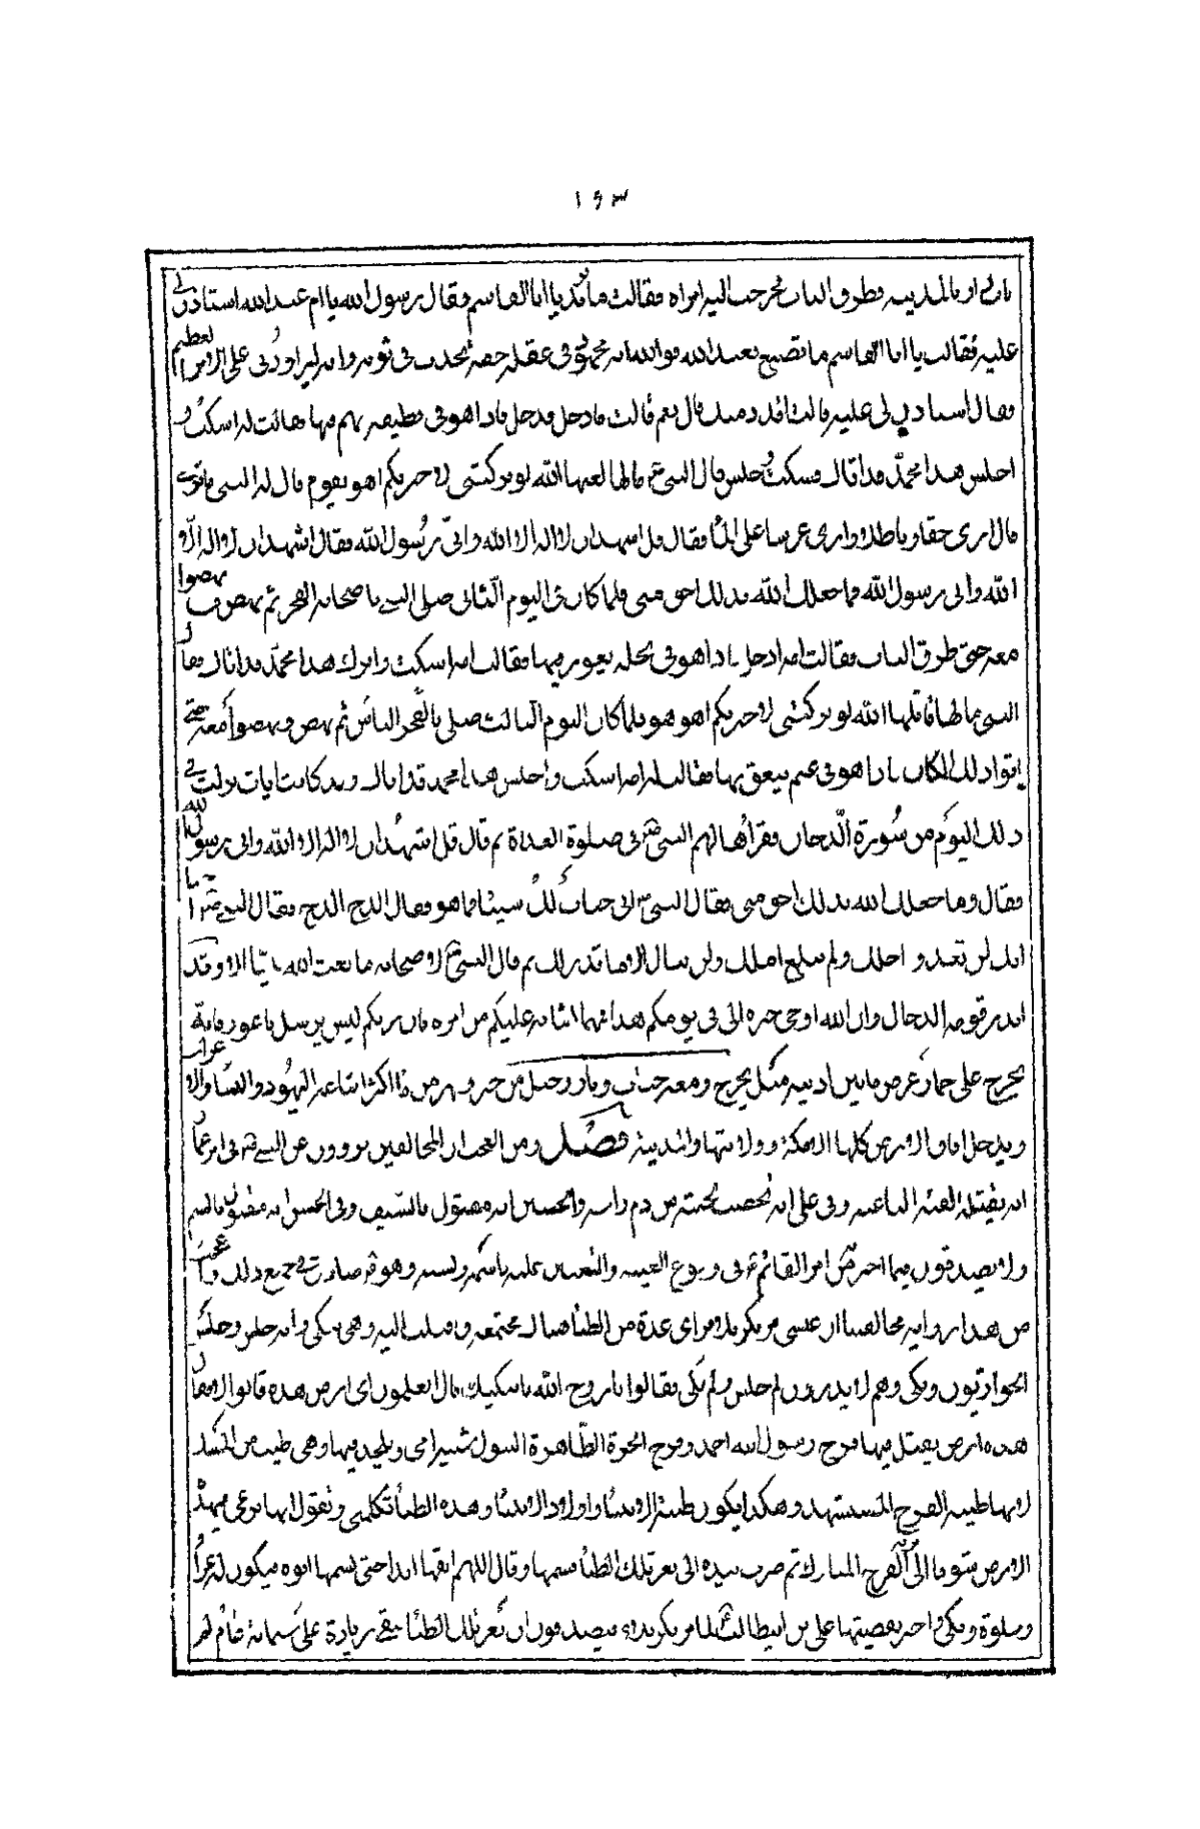 ١٦٣
باب دار بالمدينه فطرق الباب فخرجت اليه امراه فقالت ما تريد يا ابا القاسم فقال رسول الله يا ام عبد الله استاذني لي
عليه فقالت يا ابا القاسم ما تصنع بعبد الله فوالله انه لمجهود في عقله يحدث في ثوبه وانه ليراودني على الامر العظيم
فقال استاذني لي عليه قالت في ذمتك قال نعم قالت فادخل فدخل فاذا هو في قطيفه يهم فيها فقالت له اسكت و
اجلس هذا محمد قد اتاك فسكت وجلس قال النبي ما لها لعنها الله لو تركتني لاخبرتكم اهو هو ثم قال له النبي ما ترى
قال ارى حقا وباطلا وارى عرشا على الماء فقال قل اشهد ان لا اله الا الله واني رسول الله فقال اشهد ان لا اله الا
الله واني رسول الله فما جعلك الله بذلك احق مني فلما كان في اليوم الثاني صلى النبي باصحابه الفجر ثم نهض ونهضوا
معه حتى طرق الباب فقالت امه ادخل فاذا هو في نخله يغرد فيها فقالت امه اسكت وانزل هذا محمد قد اتاك فقال
النبي ما لها قاتلها الله لو تركتني لاخبرتكم اهو هو فلما كان اليوم الثالث صلى بالفجر الناس ثم نهض ونهضوا معه حتى
اتوا ذلك المكان فاذا هو في غنم ينعق بها فقالت له امه اسكت واجلس هذا محمد قد اتاك وقد كانت ايات نزلت في
ذلك اليوم من سورة الدخان فقرأها لهم النبي في صلوة الغداة ثم قال قل اشهد ان لا اله الا الله واني رسول الله
فقال وما جعلك الله بذلك احق مني فقال النبي اني خبات لك شيئا فما هو فقال الدخ الدخ فقال النبي اخسأ
انك لن تعدو اجلك ولم تبلغ املك ولن تنال الا ما قدر لك ثم قال النبي لاصحابه ما بعث الله نبيا الا وقد
انذر قومه الدجال وان الله اوحى خبره الي في يومكم هذا فمهما تشابه عليكم من امره فان ربكم ليس برسل باعور فانه
يخرج على حمار عرض ما بين اذنيه ميل يخرج ومعه جنه ونار وجبل من خبز ونهر من ماء اكثر اتباعه اليهود والنساء والاعراب
ويدخل افاق الارض كلها الا مكة ولابتيها والمدينة فصل ومن العجب ان المخالفين يروون عن النبي في عمار
انه يقتله الفئة الباغيه وفي على انه تخضب لحيته من دم راسه والحسين انه مقتول بالسيف وفي الحسن انه مقتول بالسم
ولا يصدقون فيما اخبر من امر القائم في وقوع الغيبه والتعيين عليه باسمه ونسبه وهو صادق في جميع ذلك واعجب
من هذا روايه مخالفينا ان عيسى مر بكربلا فراى عدة من الظباء هناك مجتمعه واقبلت اليه وهي تبكي وانه جلس وجلس
الحواريون وبكى وهم لا يدرون لم جلس ولم بكى فقالوا يا روح الله ما يبكيك قال اتعلمون اي ارض هذه قالوا لا فقال
هذه ارض يقتل فيها فرخ رسول الله احمد وفرخ الحرة الطاهرة البتول شبيه امي ويلحد فيها وهي طيب من المسك
لانها طينه الفرخ المستشهد وهكذا يكون طينة الانبياء واولاد الانبياء وهذه الظباء تكلمني وتقول انها ترعى فى هذه
الارض شوقا الى الفرخ المبارك ثم ضرب بيده الى بعر تلك الظباء فشمها وقال اللهم ابقها ابدا حتى يشمها ابوه فيكون له عزاء
وسلوة وبكى واخبر بقصتها علي بن ابي طالب لما مر بكربلاء فيصدقون ان بعر تلك الظباء يبقى زيادة على خمسمائة عام لم